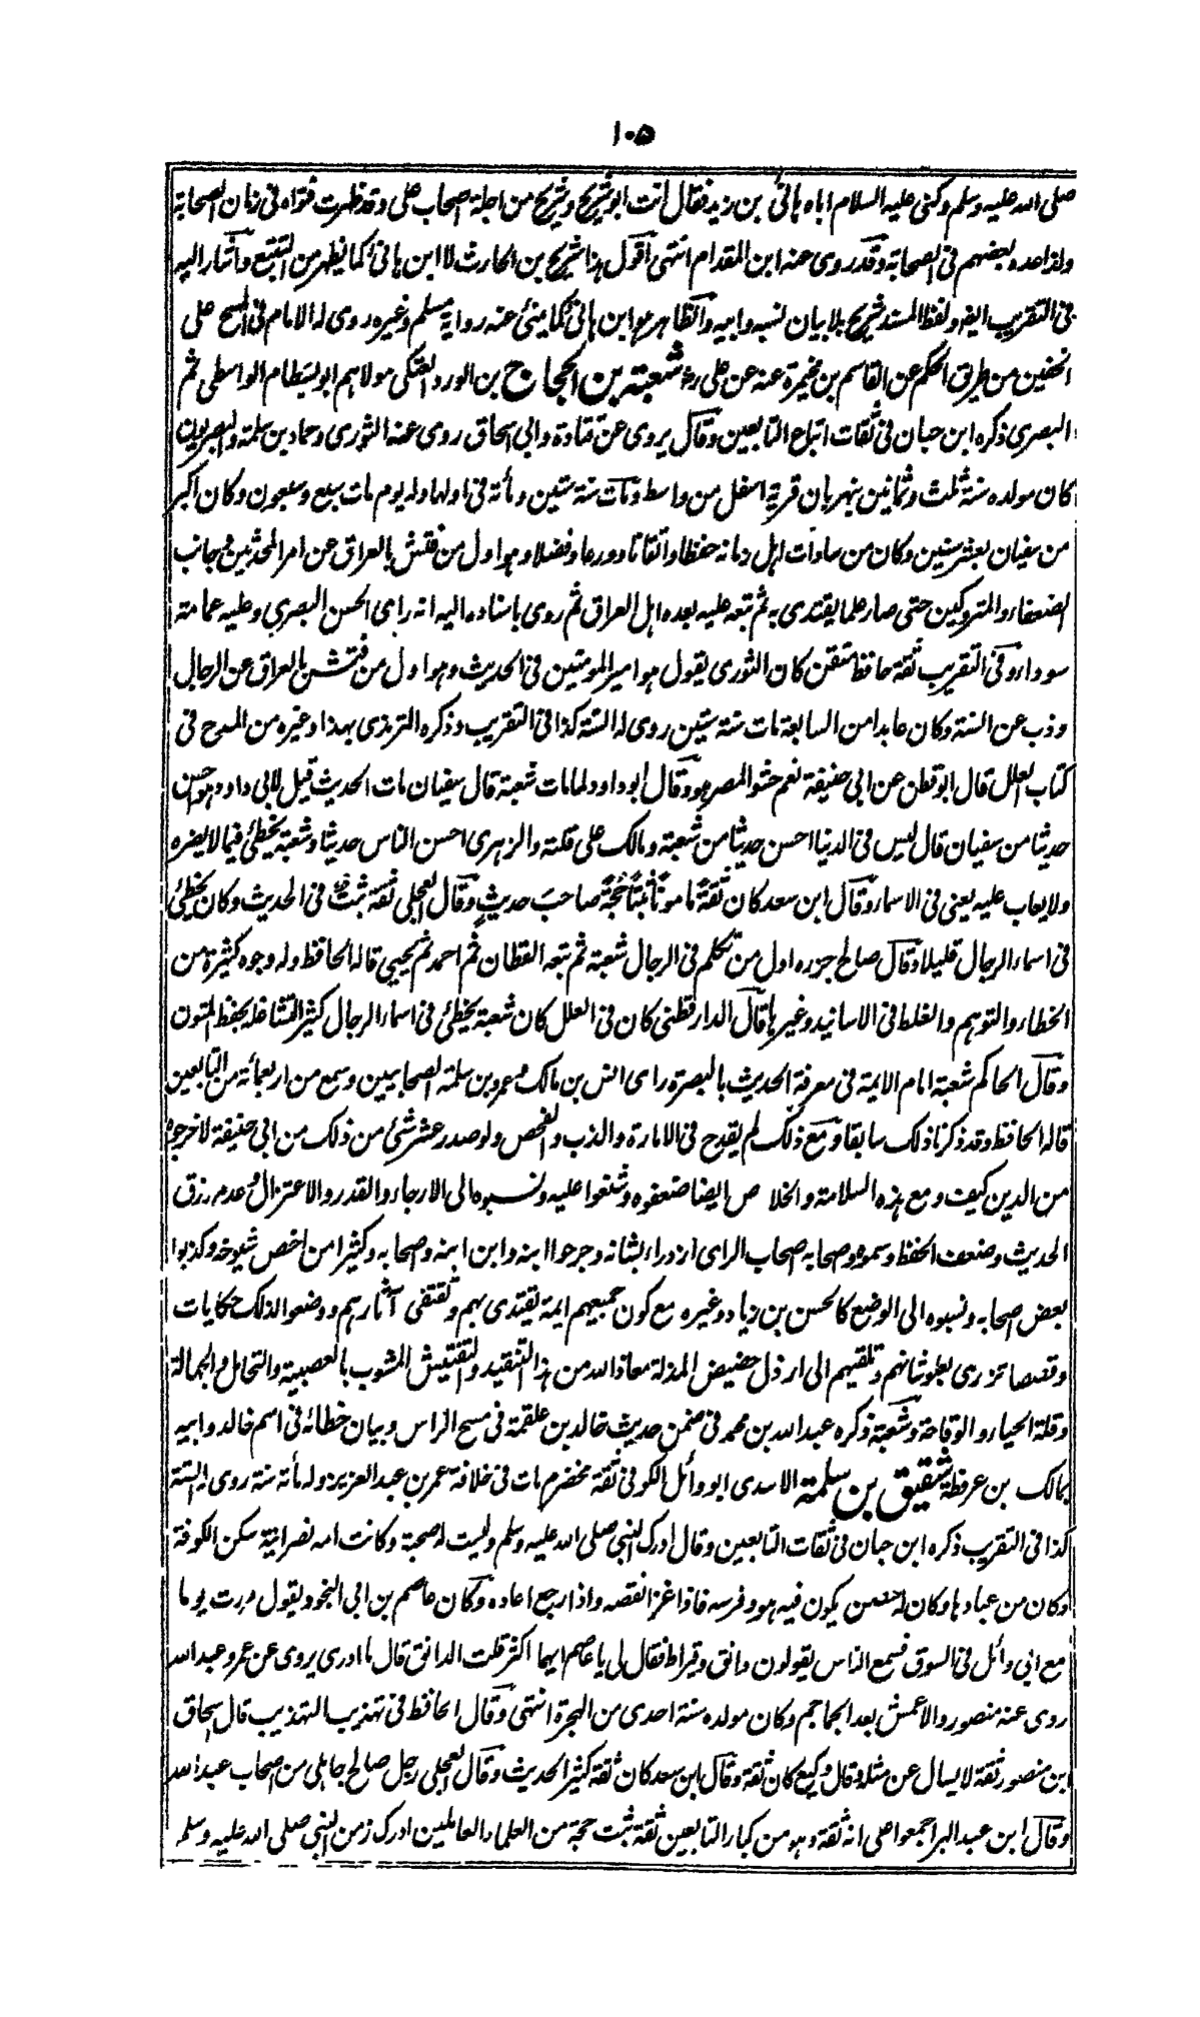 ١٠٥
صلى الله عليه وسلم وكنى عليه السلام اباه هانئ بن زيد فقال انت ابو شريح وشريح من اجلة اصحاب على وقد ظهرت فتواه فى زمان الصحابة
ولذا عده بعضهم فى الصحابة وقد روى عنه ابن المقدام انتهى اقول هذا شريح بن الحارث لا ابن هانى كما يظهر من التتبع واشار اليه
فى التقريب ايضا ولفظ المسند شريح بلا بيان لنسبه وابيه والظاهر هو ابن هانئ كما ينبئ عنه رواية مسلم وغيره روى له الامام فى المسح على
الخفين من طريق الحكم عن القاسم بن مخيمرة عنه عن على رض شعبة بن الحجاج بن الورد العتكى مولاهم ابو بسطام الواسطى ثم
البصرى ذكره ابن حبان فى ثقات اتباع التابعين وقال يروى عن قتادة وابى اسحاق روى عنه الثورى وحماد بن سلمة والبصريون
كان مولده سنة ثلث وثمانين بنهربان قرية اسفل من واسط ومات سنة ستين ومأة فى اولها وله يوم مات سبع وسبعون وكان اكبر
من سفيان بعشر سنين وكان من سادات اهل زمانه حفظا واتقانا وورعا وفضلا وهو اول من فتش بالعراق عن امر المحدثين وجانب
الضعفاء والمتروكين حتى صار علما يقتدى به ثم تبعه عليه بعده اهل العراق ثم روى باسناده اليه انه راى الحسن البصري وعليه عمامة
سوداء وفى التقريب ثقة حافظ متقن كان الثورى يقول هو امير المومنين فى الحديث وهو اول من فتش بالعراق عن الرجال
وذب عن السنة وكان عابدا من السابعة مات سنة ستين روى له الستة كذا فى التقريب وذكره الترمذى بهذا وغيره من المدح فى
كتاب العلل قال ابو قطن عن ابى حنيفة نعم حشو المصر هو وقال ابو داود لما مات شعبة قال سفيان مات الحديث قيل لابى داود هو احسن
حديثا من سفيان قال ليس فى الدنيا احسن حديثا من شعبة ومالك على قلته والزهرى احسن الناس حديثا وشعبة يخطئ فيما لا يضره
ولا يعاب عليه يعنى فى الاسماء وقال ابن سعد كان ثقةً مامونًا ثبتًا حجةً صاحبَ حديثٍ وقال العجلى ثقة ثبت فى الحديث وكان يخطئ
فى اسماء الرجال قليلا وقال صالح جزره اول من تكلم فى الرجال شعبة ثم تبعه القطان ثم احمد ثم يحيى قاله الحافظ وله وجوه كثيرة من
الخطاء والتوهم والغلط فى الاسانيد وغيرها قال الدارقطنى كان فى العلل كان شعبة يخطئ فى اسماء الرجال كثيرا لتشاغله بحفظ المتون
وقال الحاكم شعبة امام الايمة فى معرفة الحديث بالبصرة راى انس بن مالك وعمرو بن سلمة الصحابيين وسمع من اربعمائة من التابعين
قاله الحافظ وقد ذكرنا ذلك سابقا ومع ذلك لم يقدح فى الامارة والذب والفحص ولو صدر عشر شئ من ذلك من ابى حنيفة لاخرجوه
من الدين كيف ومع هذه السلامة والخلاص ايضا ضعفوه وشنعوا عليه ونسبوه الى الارجاء والقدر والاعتزال وعدم رزق
الحديث وضعف الحفظ وسموه وصحابه اصحاب الراى ازدراء بشانه وجرحوا ابنه وابن ابنه وصحابه وكثيرا من اخص شيوخه وكذبوا
بعض اصحابه ونسبوه الى الوضع كالحسن بن زياد وغيره مع كون جميعهم ايمة يقتدى بهم وتقتفى آثارهم ووضعوا لذلك حكايات
وقصصا تزرى بعلو شانهم وتلقيهم الى ارذل حضيض المذلة معاذ الله من هذا التنقيد والتفتيش المشوب بالعصبية والتحامل والجهالة
وقلة الحياء والوقاحة وشعبة ذكره عبد الله بن محمد فى ضمن حديث خالد بن علقمة فى مسح الراس وبيان خطائه فى اسم خالد وابيه
بمالك بن عرفطة شقيق بن سلمة الاسدى ابو وائل الكوفى ثقة مخضرم مات فى خلافة عمر بن عبد العزيز وله مأة سنة روى له الستة
كذا فى التقريب ذكره ابن حبان فى ثقات التابعين وقال ادرك النبى صلى الله عليه وسلم وليست له صحبة وكانت امه نصرانية سكن الكوفة
وكان من عبادها وكان له خص يكون فيه هو وفرسه فاذا غزا نقضه واذا رجع اعاده وكان عاصم بن ابى النجود يقول مررت يوما
مع ابى وائل فى السوق فسمع الناس يقولون دانق وقيراط فقال لى يا عاصم ايهما اكثر قلت الدانق قال ما ادرى يروى عن عمر وعبد الله
روى عنه منصور والاعمش بعد الجماجم وكان مولده سنة احدى من الهجرة انتهى وقال الحافظ فى تهذيب التهذيب قال اسحاق
ابن منصور ثقة لا يسال عن مثله وقال وكيع كان ثقة وقال ابن سعد كان ثقة كثير الحديث وقال العجلى رجل صالح جاهلى من اصحاب عبد الله
وقال ابن عبد البر اجمعوا على انه ثقة وهو من كبار التابعين ثقة ثبت حجة من العلماء العاملين ادرك زمن النبى صلى الله عليه وسلم